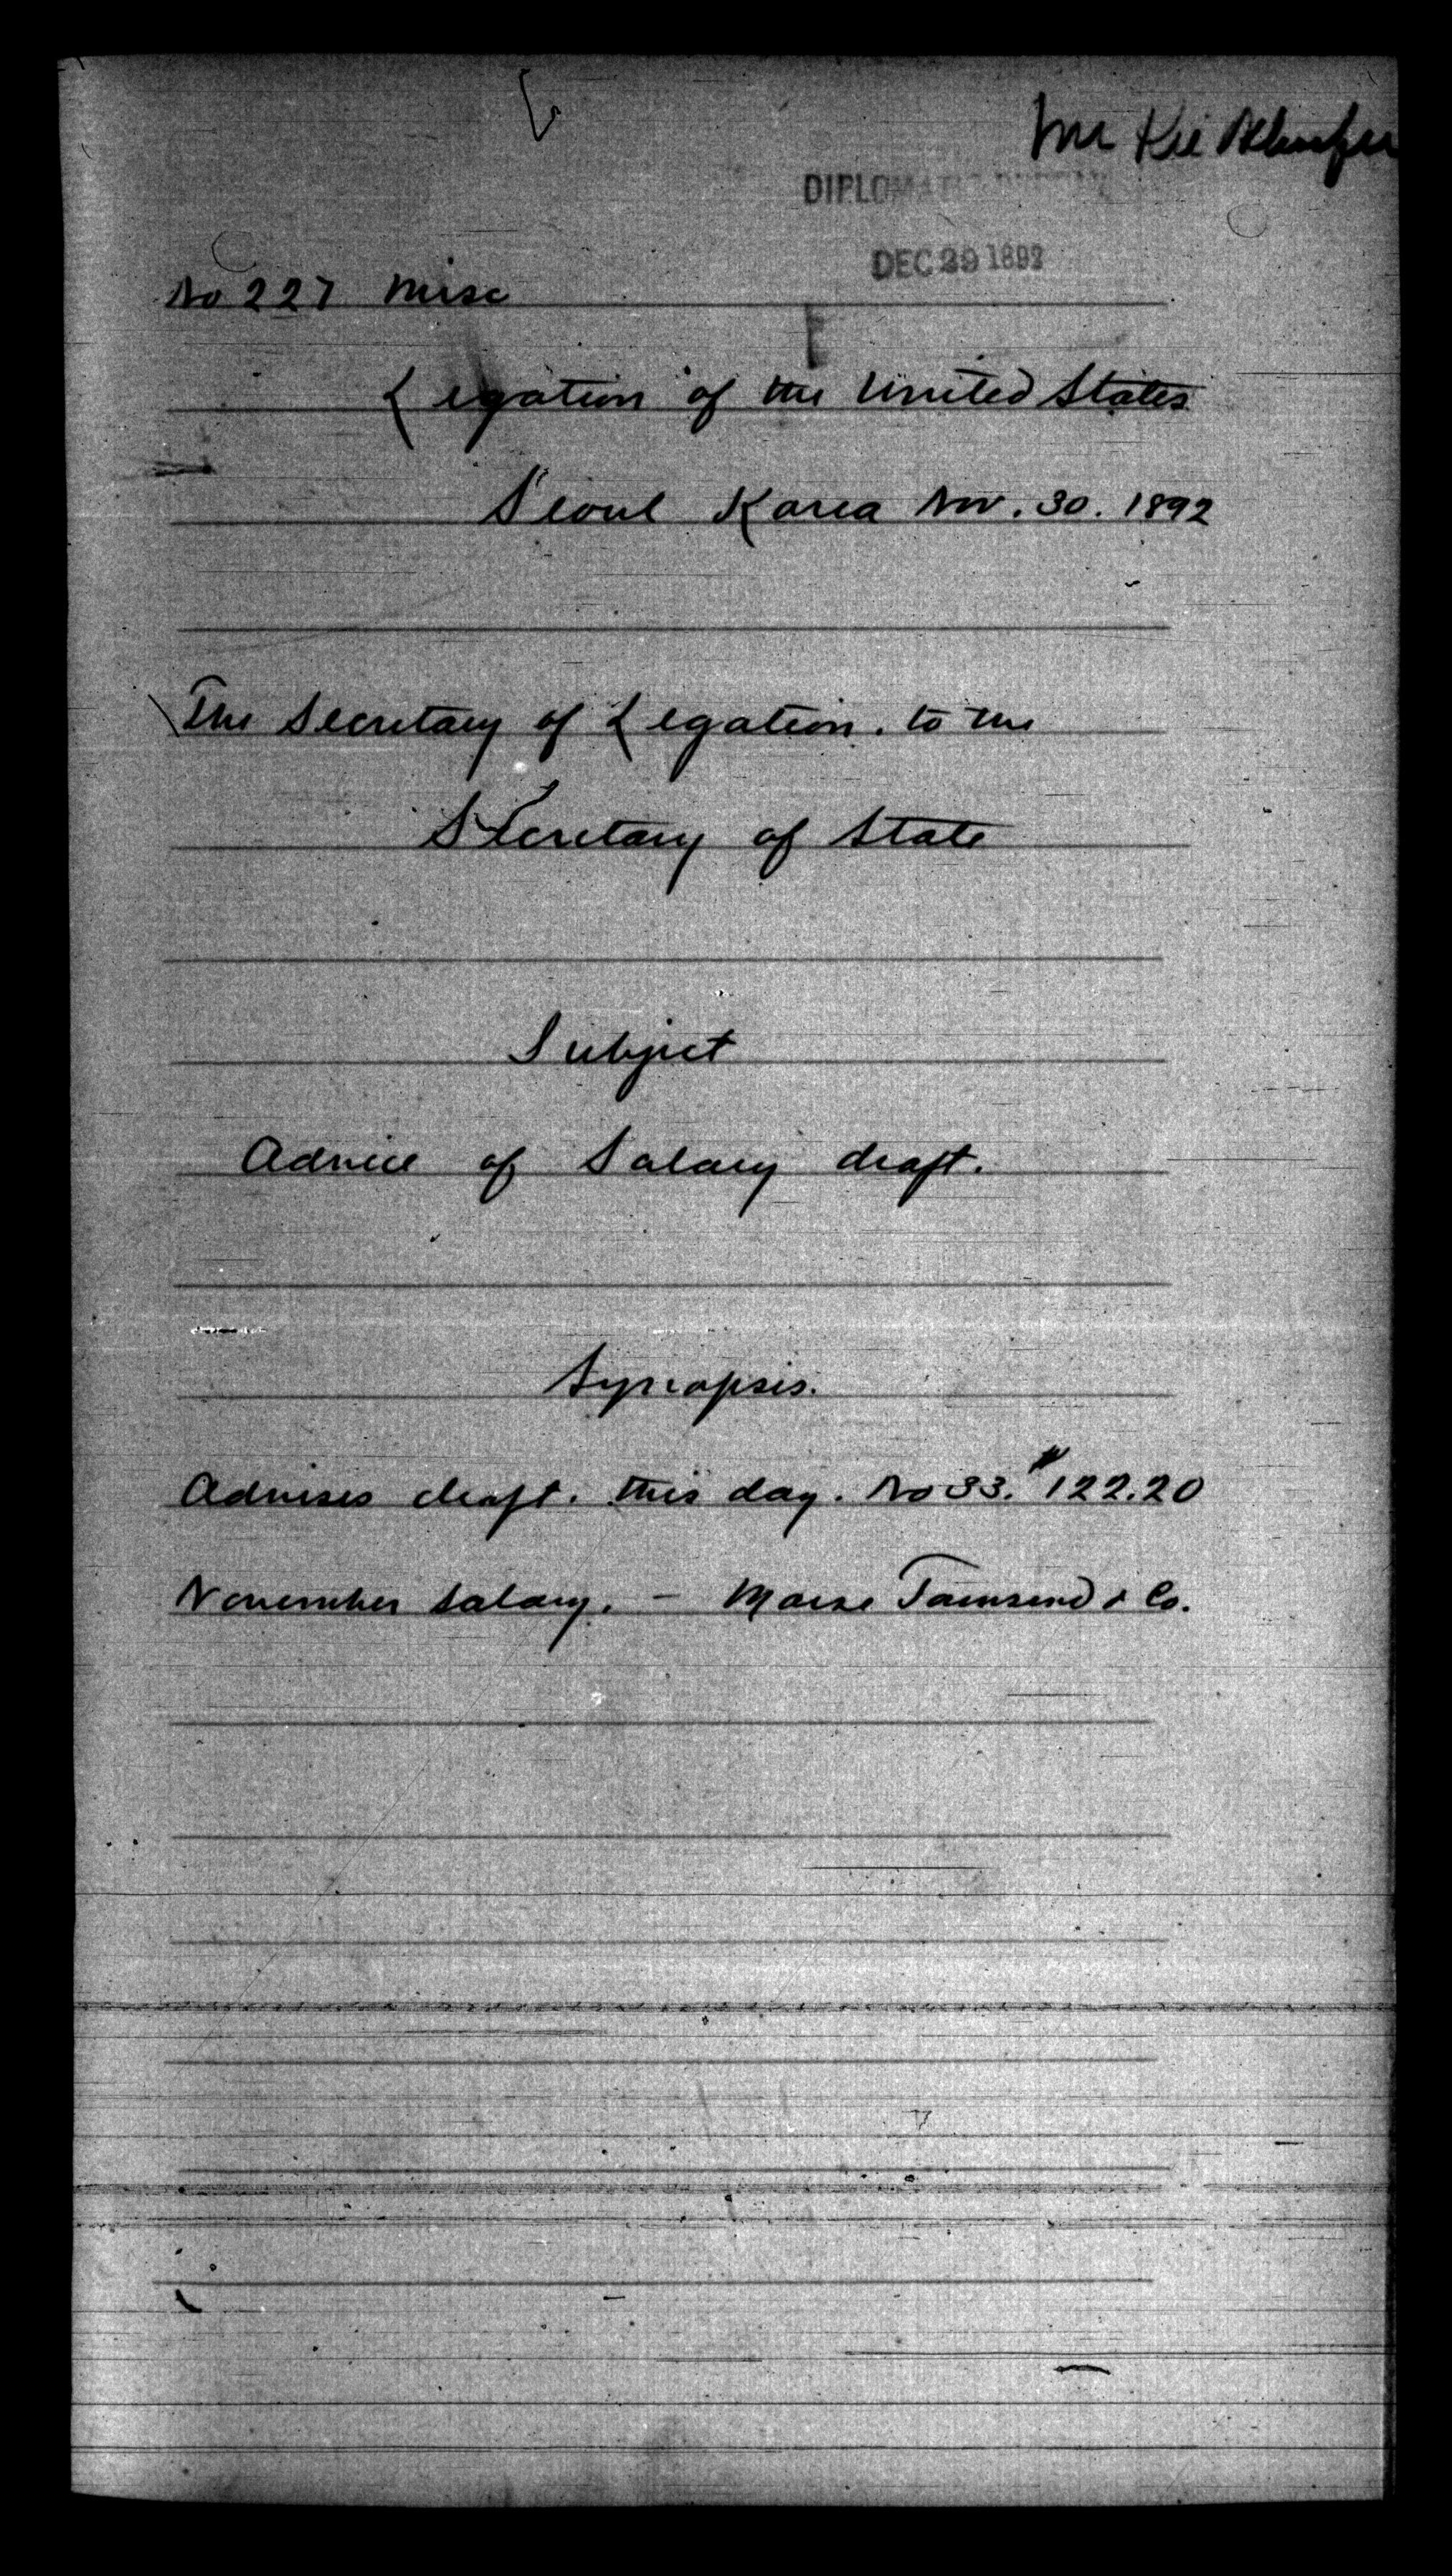 Mr Kie
DIPLOMATIC BUREAU
DEC 29 1892
No 227 Misc
Legation of the United States
Seoul Korea Nov. 30. 1892
The Secretary of Legation. to the
Secretary of State
Subject
Advice of Salary draft.
Synopsis.
Advises draft. this day. No 33. $122.20
November salary. - Morse Townsend & Co.